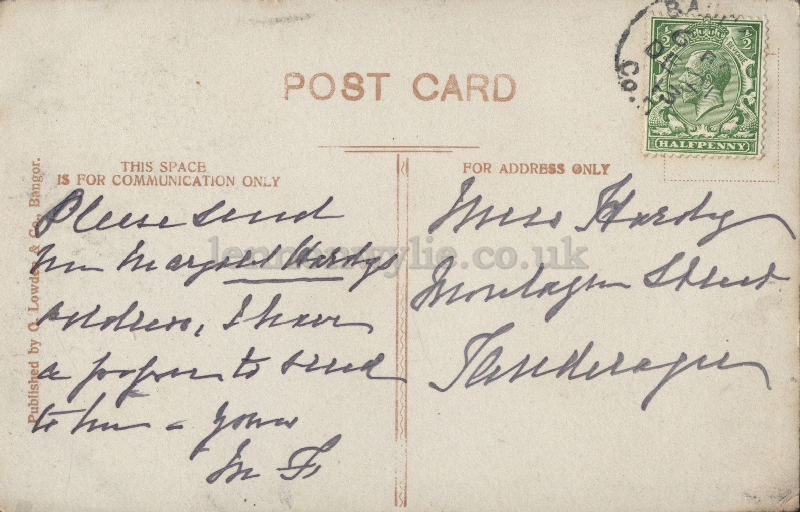 POST CARD
THIS SPACE
IS FOR COMMUNICATION ONLY
FOR ADDRESS ONLY
HALFPENNY
Co.
Published by O. Lowden & Co., Bangor.
lennonwylie.co.uk
Please send
Margaret Hardys
address, I have
a paper to send
to him - yours
M F
Miss Hardy
Montague Street
Tanderagee